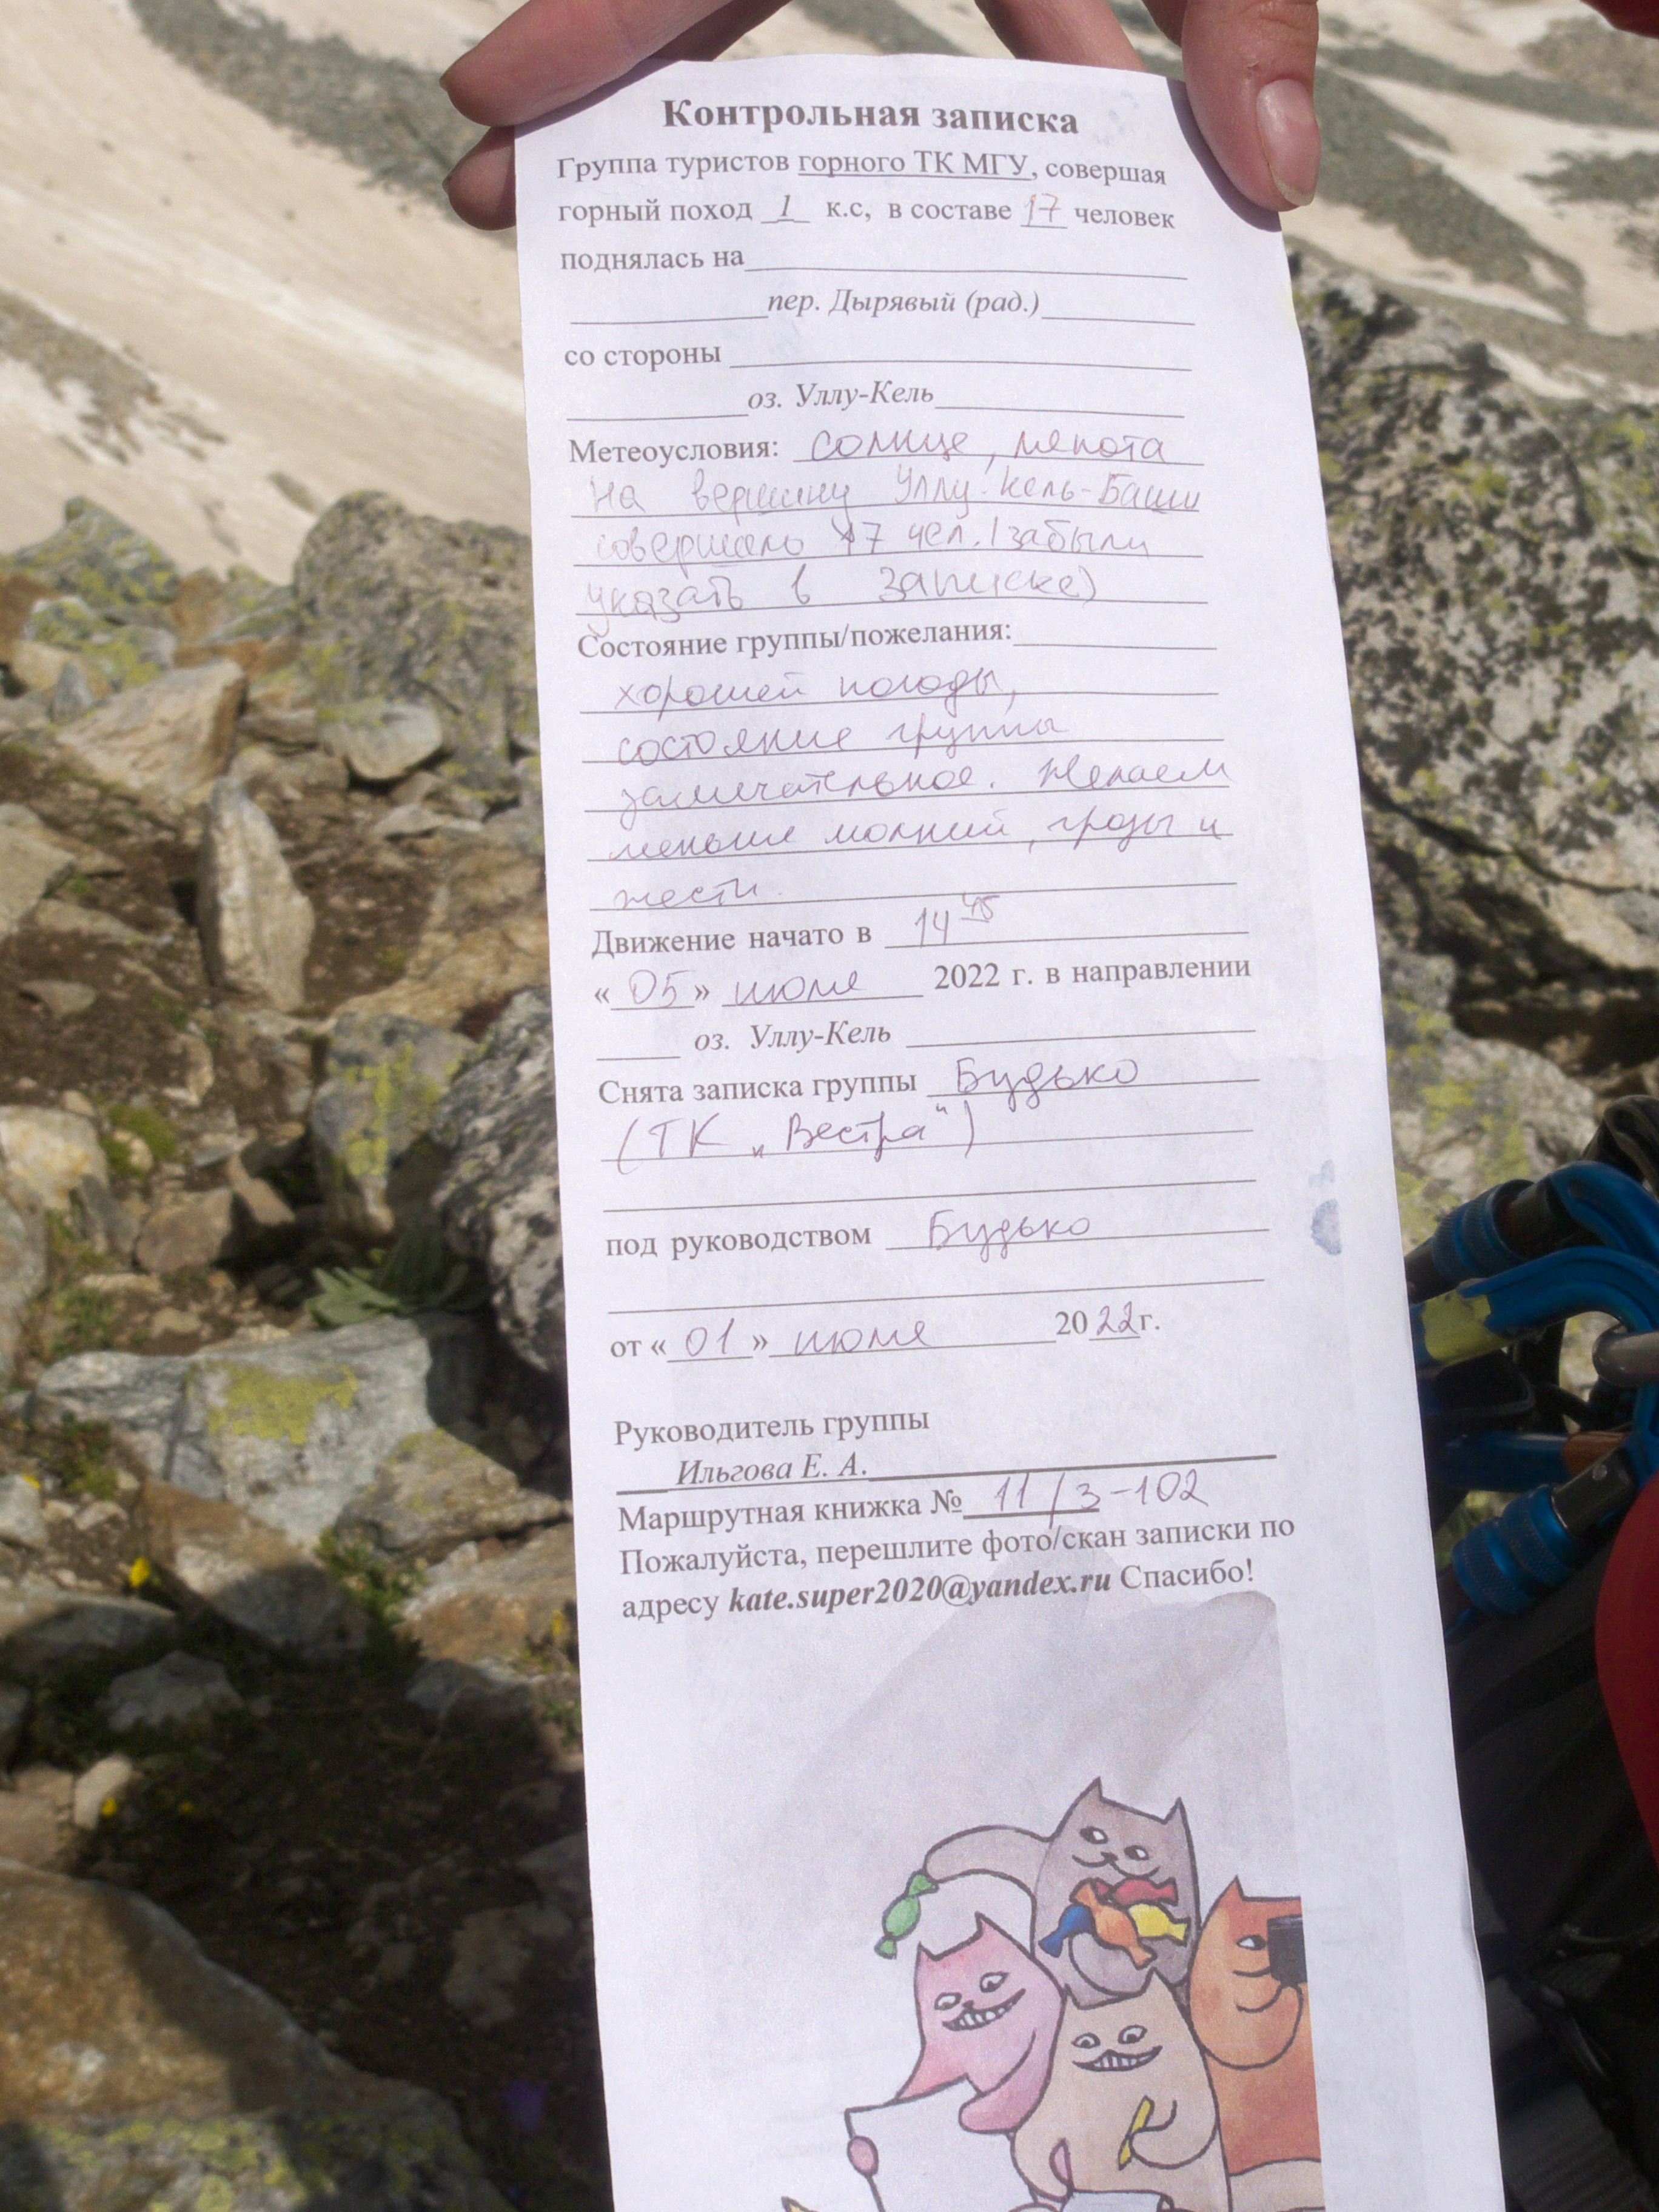 Контрольная записка
Группа туристов горного ТК МГУ, совершая
горный поход 1 к.с, в составе 17 человек
поднялась на
пер. Дырявый (рад.)
со стороны
оз. Уллу-Кель
Метеоусловия: солнце, лепота
На вершину Уллу-Кель-Баши
совершило 17 чел. (забыли
указать в записке)
Состояние группы/пожелания:
хорошей погоды,
состояние группы
замечательное. Желаем
меньше молний, грозы и
жести.
Движение начато в 14 45
«05» июля 2022 г. в направлении
оз. Уллу-Кель
Снята записка группы Будько
(ТК „Вестра“)
под руководством Будько
от «01» июля 2022г.
Руководитель группы
Ильгова Е. А.
Маршрутная книжка № 11/3-102
Пожалуйста, перешлите фото/скан записки по
адресу kate.super2020@yandex.ru Спасибо!